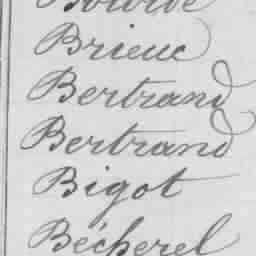 Brieuc
Bertrand
Bertrand
Bigot
Bécherel